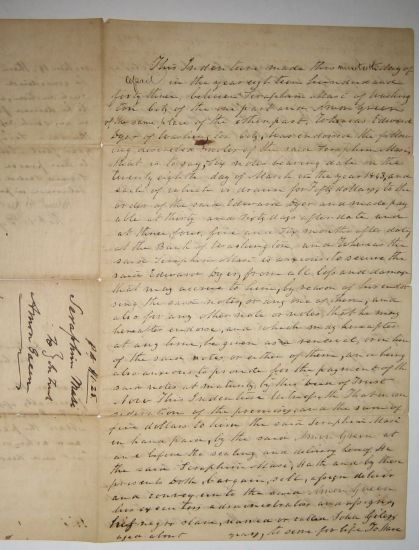 This Indenture made this nineteenth day of
April in the year eighteen hundred and
forty three, between Seraphim Masi of Washing
ton City of the one part and Amon Green
of the same place of the other part, Whereas Edward
Dyer of Washington City, has endorsed the follow
ing described notes of the said Seraphim Masi,
that is to say, Six notes bearing date on the
twenty eighth day of March in the year 1843, and
each of which is drawn for Fifty dollars, to the
order of the said Edward Dyer and made pay
able at thirty and Sixty days after date and
at three, four, five and Six months after date
at the Bank of Washington, and Whereas the
said Seraphim Masi is anxious to secure the
said Edward Dyer, from all loss and damage
that may accrue to him, by reason of his endor
sing the said notes, or any one of them, and
also for any other note or notes, that he may
hereafter endorse, and which may hereafter
at any time, be given as a renewal, in lieu
of the said notes or either of them, and being
also anxious to provide for the payment of the
said notes at maturity, by this Deed of Trust
Now This Indenture Witnesseth, That in con
sideration of the premises, and the sum of
five dollars to him the said Seraphim Masi
in hand paid, by the said Amon Green at
and before the sealing and delivery hereof, He
the said Seraphim Masi, Hath and by these
presents doth, bargain, sell, assign deliver
and convey, unto the said Amon Green
his executors administrators and assigns,
his negro slave, named or called John Giles,
aged about years, the same for life To Have
Seraphim Masi
To Deed
Amon Green